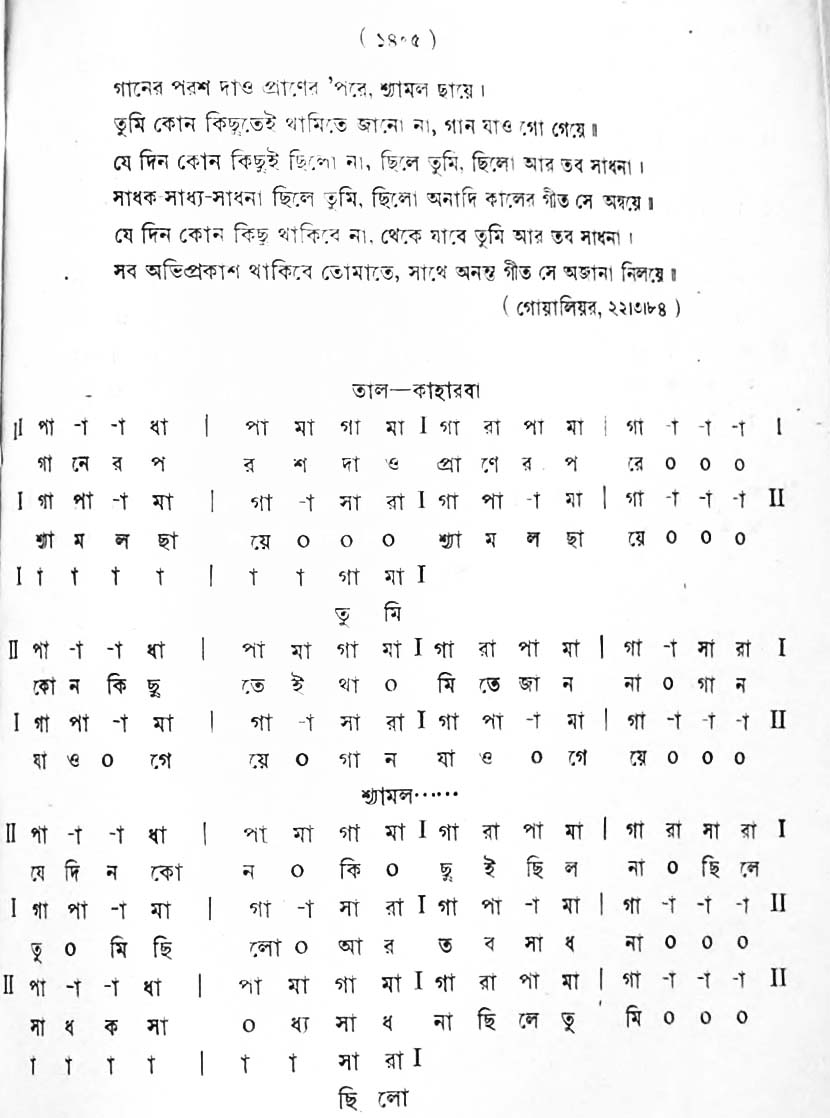 ( ১৪০৫ )
গানের পরশ দাও প্রাণের 'পরে, শ্যামল ছায়ে ।
তুমি কোন কিছুতেই থামিতে জানো না, গান যাও গো গেয়ে ॥
যে দিন কোন কিছুই ছিলো না, ছিলে তুমি, ছিলো আর তব সাধনা ।
সাধক-সাধ্য-সাধনা ছিলে তুমি, ছিলো অনাদি কালের গীত সে অন্বয়ে ॥
যে দিন কোন কিছু থাকিবে না, থেকে যাবে তুমি আর তব সাধনা ।
সব অভিপ্রকাশ থাকিবে তোমাতে, সাথে অনন্ত গীত সে অজানা নিলয়ে ॥
( গোয়ালিয়র, ২২।৩।৮৪ )
তাল—কাহারবা
II পা -া -া ধা | পা মা গা মা I গা রা পা মা | গা -া -া -া I
গা নে র প র শ দা ও প্রা ণে র প রে ০ ০ ০
I গা পা -া মা | গা -া সা রা I গা পা -া মা | গা -া -া -া II
শ্যা ম ল ছা য়ে ০ ০ ০ শ্যা ম ল ছা য়ে ০ ০ ০
I া া া া | া া গা মা I
তু মি
II পা -া -া ধা | পা মা গা মা I গা রা পা মা | গা -া সা রা I
কো ন কি ছু তে ই থা ০ মি তে জা ন না ০ গা ন
I গা পা -া মা | গা -া সা রা I গা পা -া মা | গা -া -া -া II
যা ও ০ গে য়ে ০ গা ন যা ও ০ গে য়ে ০ ০ ০
শ্যামল······
II পা -া -া ধা | পা মা গা মা I গা রা পা মা | গা রা সা রা I
যে দি ন কো ন ০ কি ০ ছু ই ছি ল না ০ ছি লে
I গা পা -া মা | গা -া সা রা I গা পা -া মা | গা -া -া -া II
তু ০ মি ছি লো ০ আ র ত ব সা ধ না ০ ০ ০
II পা -া -া ধা | পা মা গা মা I গা রা পা মা | গা -া -া -া II
সা ধ ক সা ০ ধ্য সা ধ না ছি লে তু মি ০ ০ ০
া া া া | া া সা রা I
ছি লো